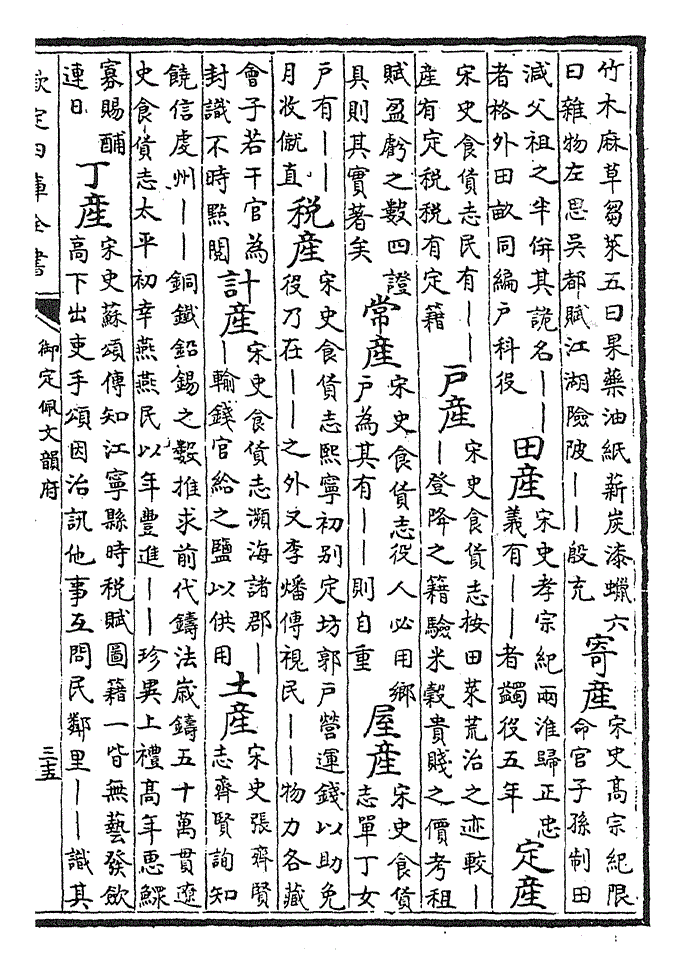 竹木麻草芻萊五曰果藥油紙薪炭漆蠟六
曰雜物左思吳都賦江湖險陂——殷充
寄産
宋史髙宗紀限
命官子孫制田
减父祖之半併其詭名——
者格外田畝同編戶科役
田産
宋史孝宗紀兩淮歸正忠
義有——者蠲役五年
定産
宋史食貨志民有——
産有定税税有定籍
戸産
宋史食貨志按田萊荒治之迹較—
—登降之籍驗米穀貴賤之價考租
賦盈虧之數四證
具則其實著矣
常産
宋史食貨志役人必用鄉
戶為其有——則自重
屋産
宋史食貨
志單丁女
戶有——
月收僦直
税産
宋史食貨志熙寧初别定坊郭戶營運錢以助免
役乃在——之外又李燔傳視民——物力各藏
會子若干官為
封識不時點閲
計産
宋史食貨志瀕海諸郡—
—輸錢官給之鹽以供用
土産
宋史張齊賢
志齊賢詢知
饒信虔州——銅鐵鉛錫之數推求前代鑄法嵗鑄五十萬貫遼
史食貨志太平初幸燕燕民以年豐進——珍異上禮髙年惠鰥
寡賜酺
連日
丁産
宋史蘇頌傳知江寧縣時税賦圖籍一皆無藝發歛
高下出吏手頌因治訊他事互問民鄰里——識其
欽定四庫全書
御定佩文韻府
三五